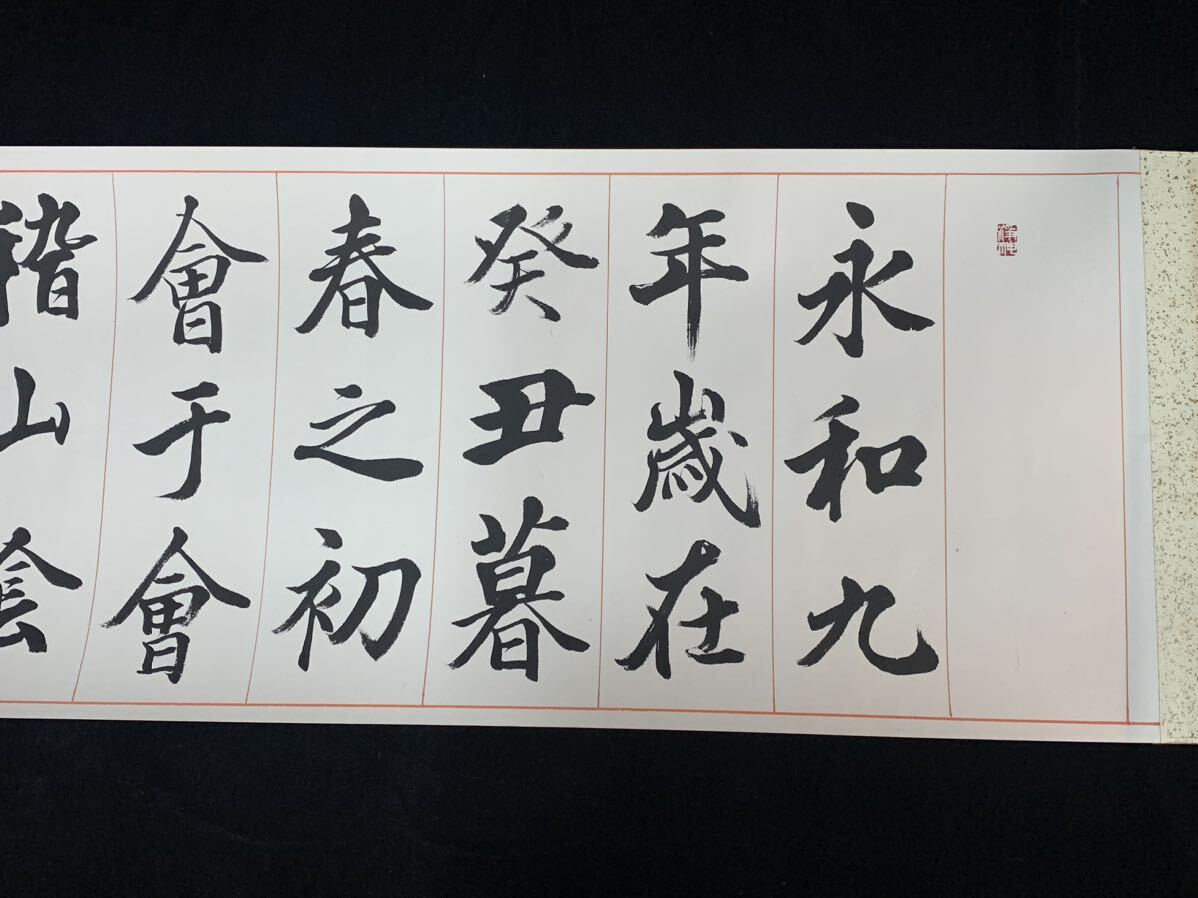 永和九
年歲在
癸丑暮
春之初
會于會
稽山陰